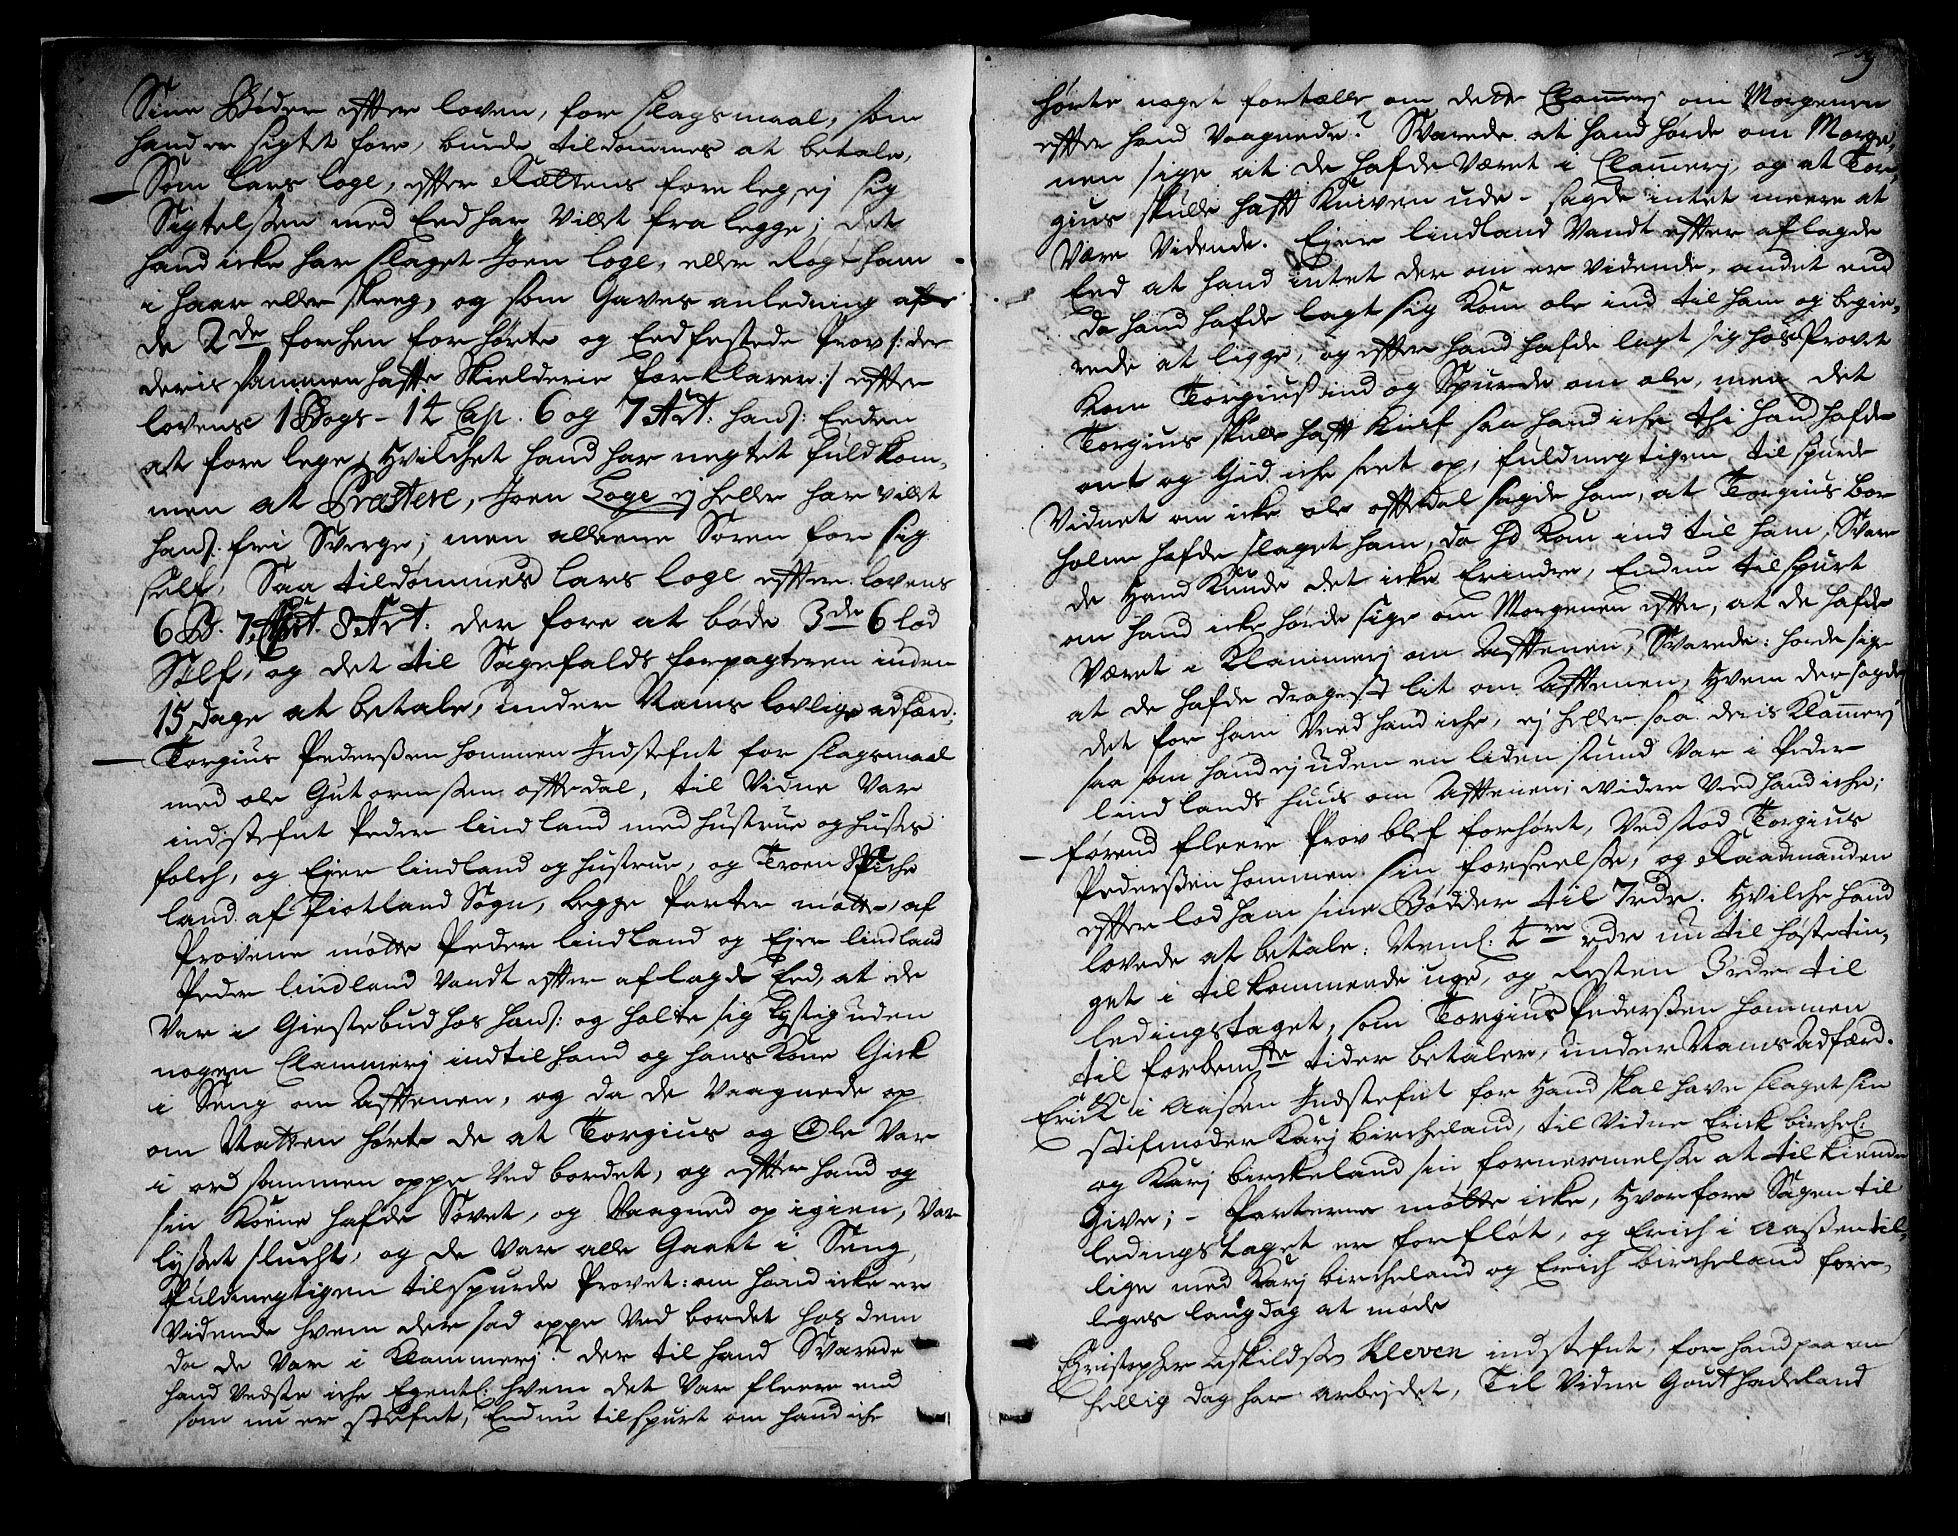 Sine Bøder efter loven, for slagsmaal, som
hand er sigtet fore, burde tildømmes at betale,
Som Lars Loge, efter Rættens foreleg, ej sig
Sigtelßen med Eed har villet fra legge; det
hand icke har slaget Joen Loge, eller Røgt ham
i haar eller skeeg, og som Gaves anledning af
de 2de forhen forhørte og Eedfestede Prov /: der
deris sammen hafte Skielderie forklarer :/ efter
lovens 1 Bogs - 14 Cap. 6 og 7 Art: hans: Eeden
at fore lege, hvilchet hand har negtet fuldkom,
men at Præstere, Joen Loge ej heller har villet
hans: frj Sverge; men alleene Soren for sig
self, Saa tildømmes Lars Loge efter lovens
6 B. 7 Cap. 8 Art. der fore at bøde 3de 6 lod
Sølf, og det til Sagefalds forpagteren inden
15 dage at betale, under Nams lovlige adfærd;
Torgius Pederßen hommen Indstefnt for slagsmaal
med ole Gutormßen oftedal, til Vidne var
indstefnt Peder lindland med hustrue og huußes
folch, og Ejer lindland og hustrue, og Troen
land af Fiotland Sogn, begge Parter møtte, af
Provene møtte Peder lindland og Ejer lindland
Peder lindland Vandt efter aflagde Eed, at de
var i Giestebud hos hans: og holte sig lystig uden
nogen Clammerj indtil hand og hans Kone Gick
i Seng om Aftenen, og da de Vaagnede op
om Natten hørte de at Torgius og Ole var
i ord sammen oppe ved bordet, og efter hand og
sin Kone hafde Sovet, og Vaagned op igien, var
lyßet slucht, og de var alle Gaaet i Seng,
Fuldmegtigen tilspurde Provet: om hand icke er
Vidende hvem der sad oppe ved bordet hos dem
da de var i Klammerj? der til hand Svarede
hand vedste iche Egentl: hvem det var fleere end
som nu er stefnt, Endnu tilspurt om hand iche
9
hørte noget fortælle om dette Clamerj om Morgenen
efter hand Vaagnede? Svarede at hand hørde om Morge,
nen sige at de hafde Været i Clamerj, og at Tor,
gius skulle haft Kniven ude - sagde intet meere at
være Vidende. Ejer lindland Vandt efter aflagde
Eed at hand intet der om er Vidende, andet end
da hand hafde lagt sig Kom ole ind til ham og begie,
rede at ligge, og efter hand hafde lagt sig hos Provet
Kom Torgius ind og Spurde om ole, men det
Torgius skulle haft Knif saa hand iche thi hand hafde
ont og Gid iche seet op, fuldmegtigen tilspurde
Vidnet om icke ole oftedal sagde ham, at Torgius
hafde slaget ham, da hd Kom ind til ham, Sva
de hand Kunde det icke Erindre, Endnu tilspurt
om hand icke hørde sige om Morgenen efter, at de hafde
Været i Klammerj om Aftenen, Svarede: hørde sige
at de hafde dragest lit om Aftenen, hvem der sagde
det for ham Veed hand iche, ej heller saa deris Klamerj
saa som hand ej uden en liden stund var i Peder
lindlands huus om Aftenen; videre Ved hand iche;
førend fleere Prov blef forhørt, Vedstod Torgius
Pederßen hommen sin forseelße, og Raadmanden
efterlod ham sine Bødder til 7 rdr. hvilche hand
lovede at betale: Neml: 4re rdr nu til høstetin,
get i tilkommende uge, og Resten 3 rdr til
ledingstaget, som Torgius Pederßen hommen
til forbente tider betaler, under Nams Adfærd.
Erick i Aaßen Indstefnt for hand skal have slaget sin
stifmoder Karj Bircheland, til Vidne Erick birchel:
og Karj birckeland sin fornermelße at tilkiende
Give; - Parterne møtte icke, hvorfore Sagen til
ledingstaget er forfløt, og Erich i Aaßen til,
lige med Karj bircheland og Erich bircheland fore,
leges laugdag at møde
Christopher Askildsß Kleven indstefnt, for hand paa en
hellig dag har arbejdet, Til Vidne Gout hadeland